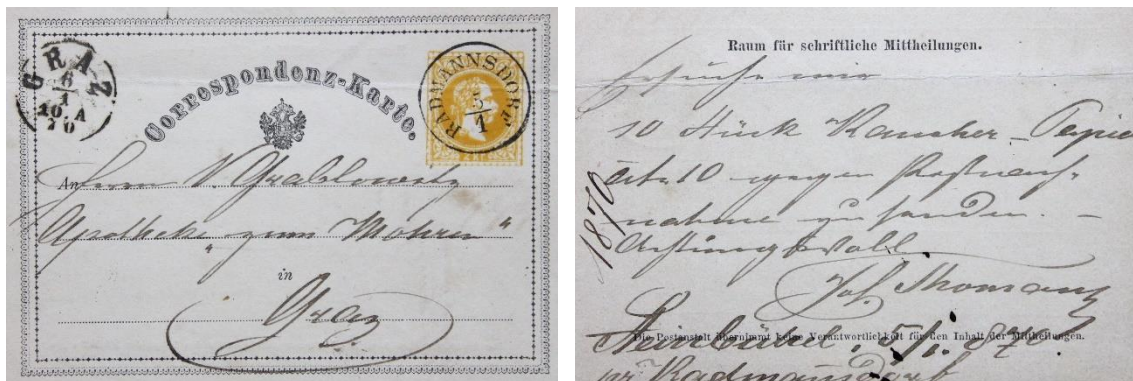 GRAZ
6
1
10. A
70
Correspondenz-Karte.
RADMANNSDORF
5/1
2 KR
An Herrn V. Grablowitz
Apotheke "zum Mohren"
in
Graz
Raum für schriftliche Mittheilungen.
Ersuche mir
10 Stück Rancher-Papier
10 gegen Postnach-
nahme zu senden. –
Achtungsvoll
1870
Jos. Thomann
Die Postanstalt übernimmt keine Verantwortlichkeit für den Inhalt der Mittheilungen.
Steinbüchel, 5/1. 870
pr Radmannsdorf